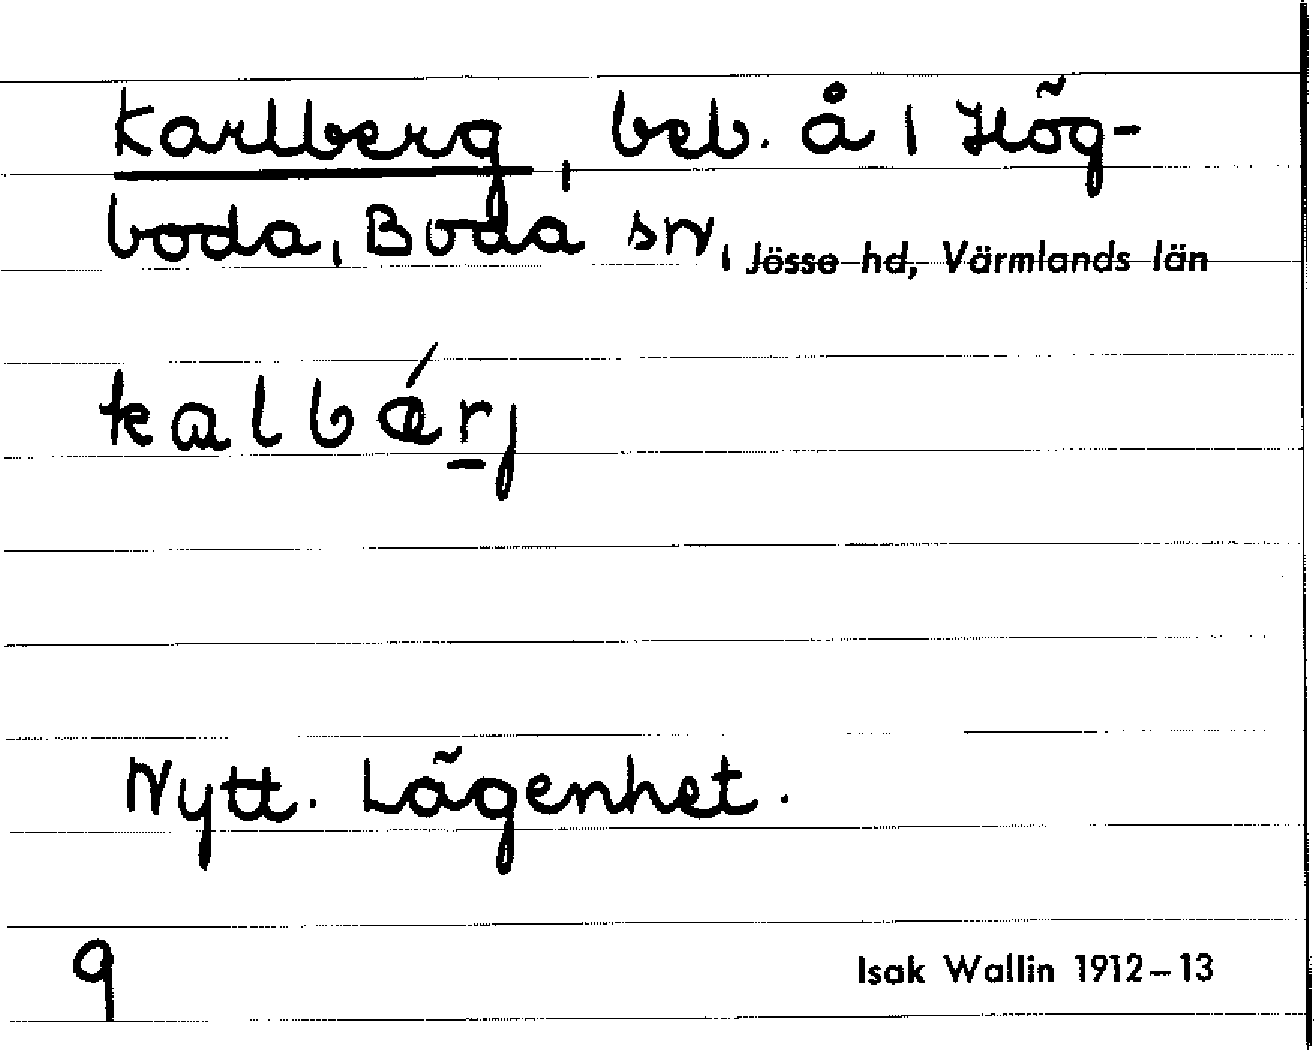 Karlberg, beb. å i Hög-
boda, Boda sn, Jösse hd, Värmlands län
kalbærj
Nytt. Lägenhet.
9
Isak Wallin 1912–13